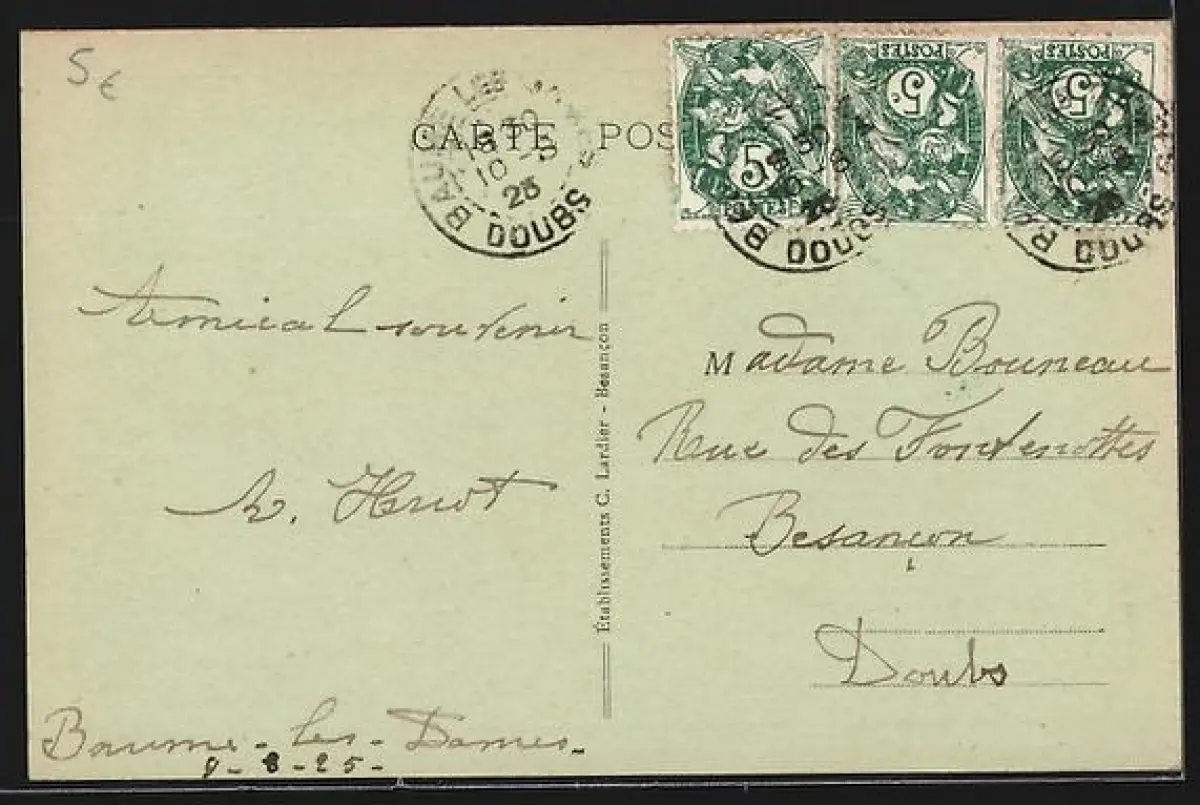 5€
CARTE POS
BAUME LES DAMES
10 -8
25
DOUBS
5
POSTES
5
POSTES
5
POSTES
DOUBS
DOUBS
Amical souvenir
Madame Bouneau
Rue des Fontenottes
Besançon
Doubs
Baume-les-Dames-
9-8-25-
Établissements C. Lardier - Besançon